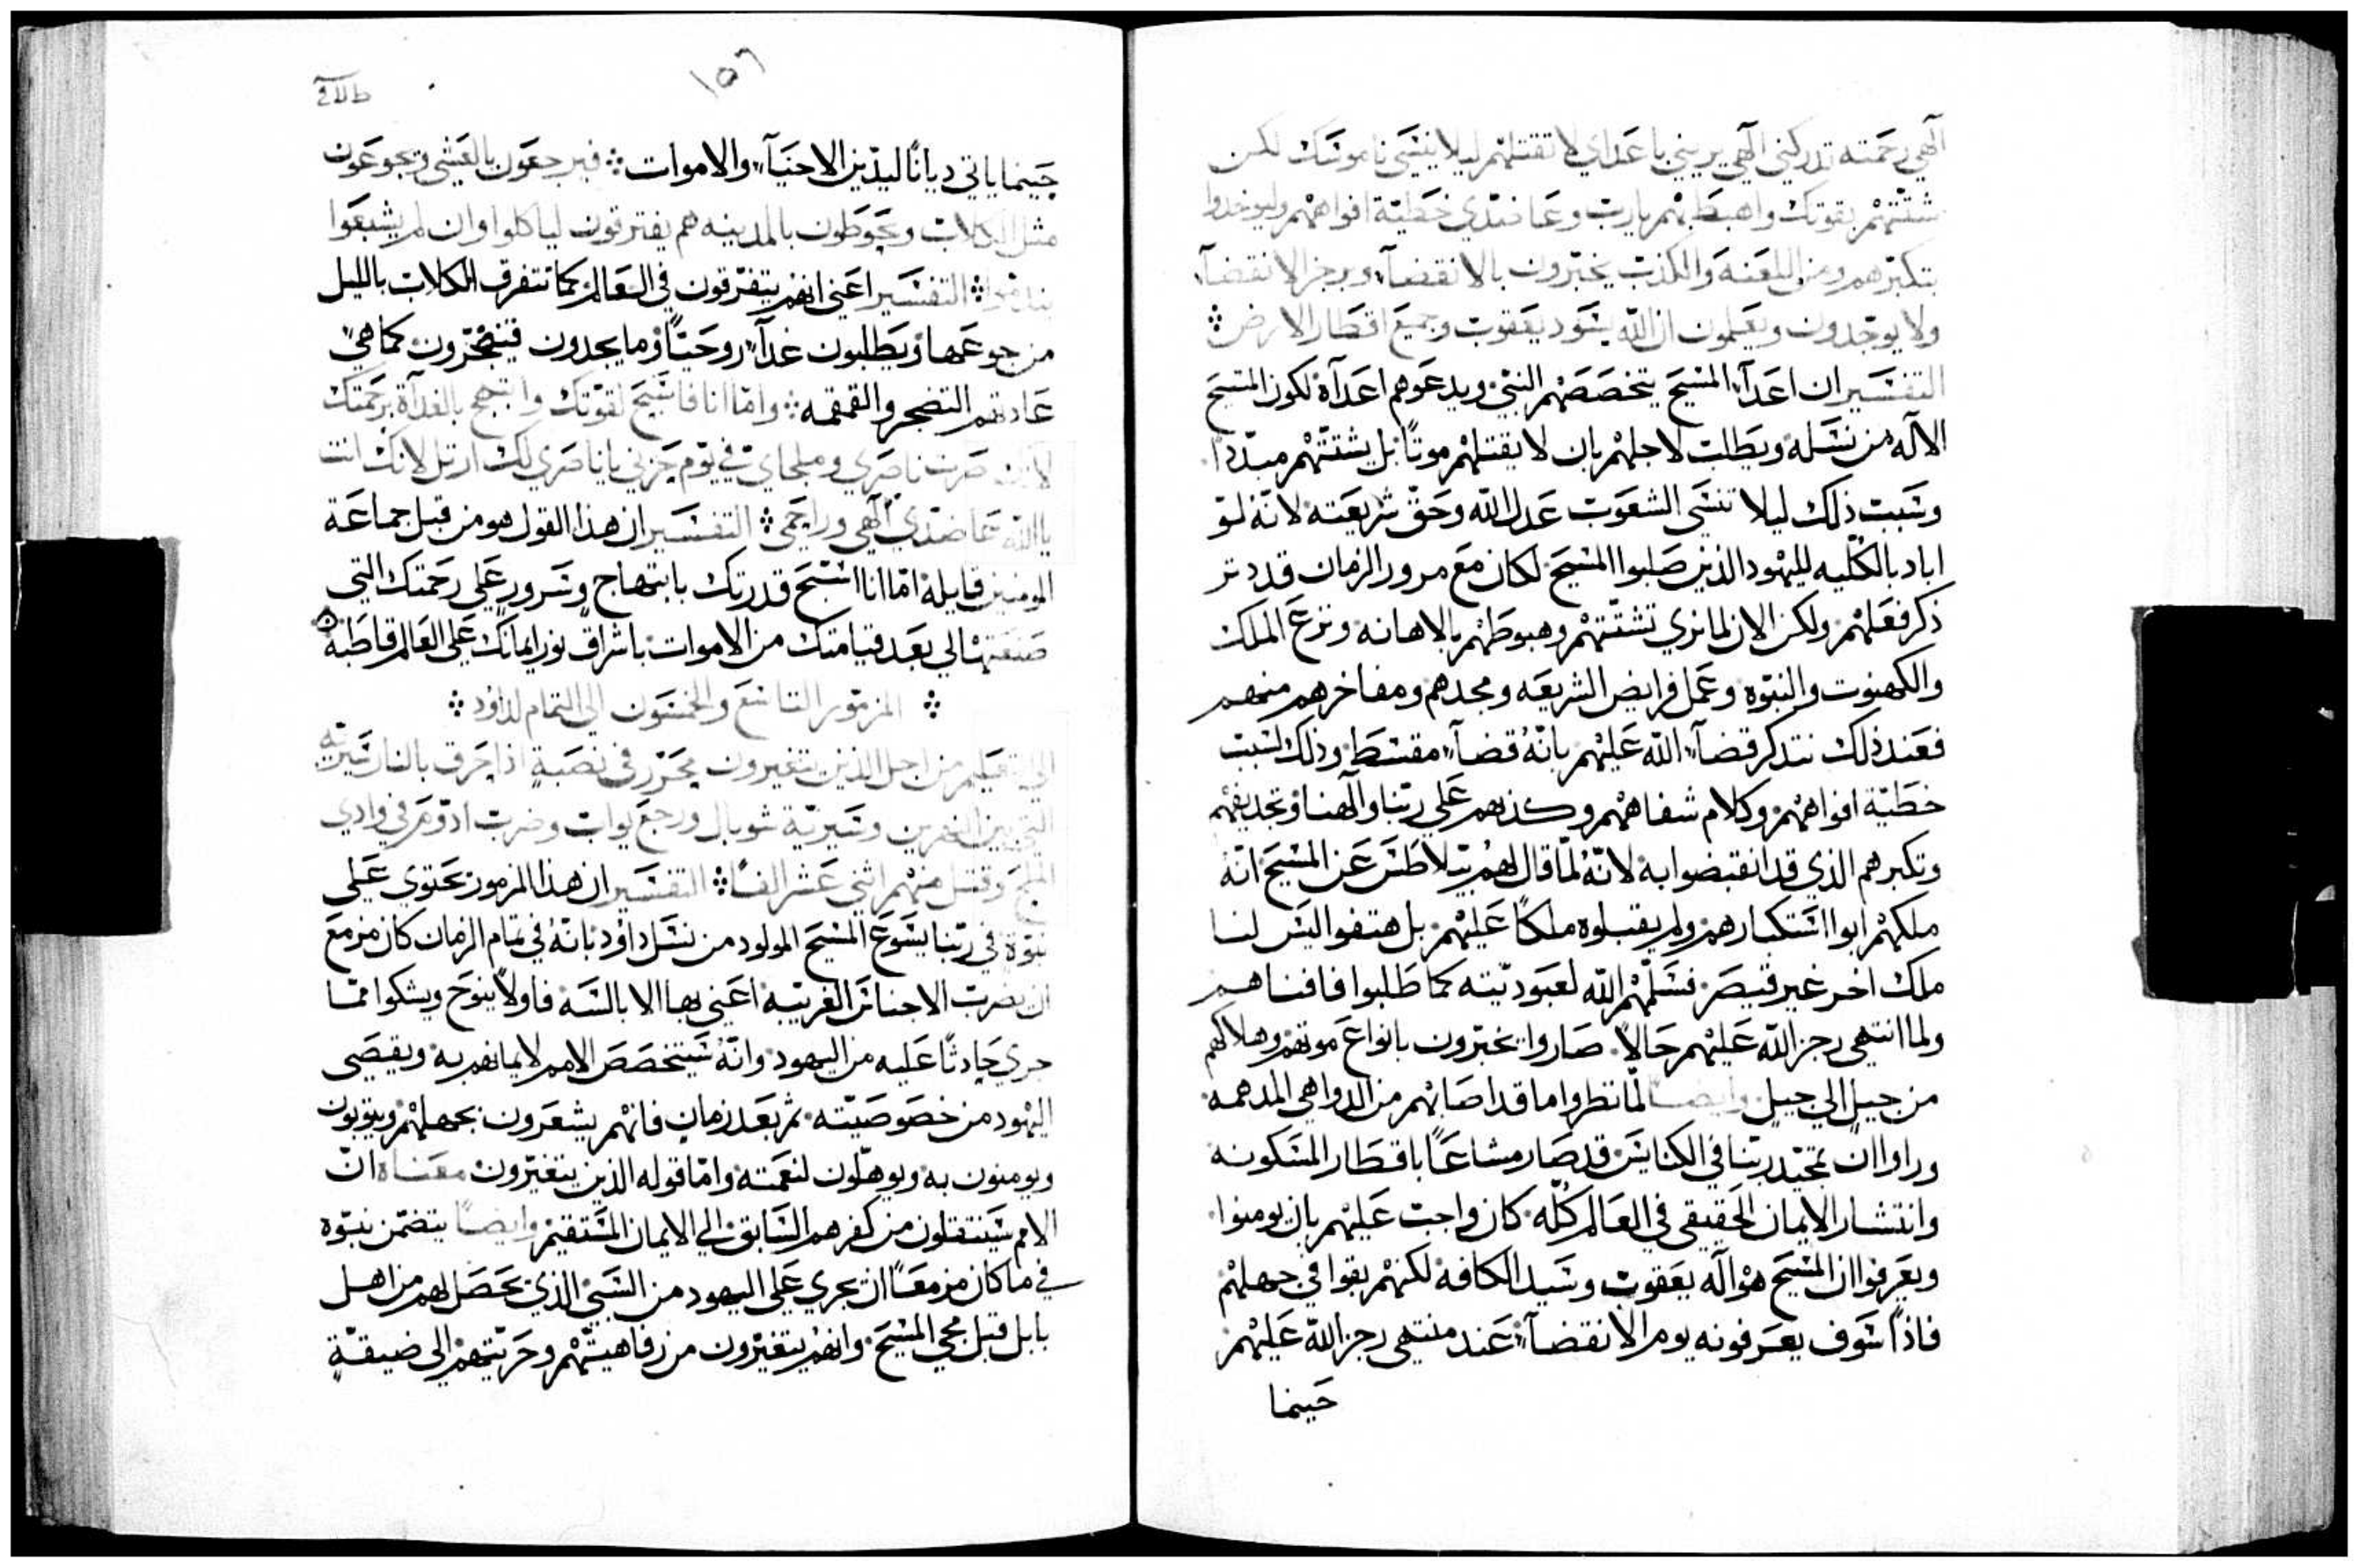 آلهي رحمته تدركني آلهي يريني باعداي لا تقتلهم ليلا ينسى ناموسك لكن
شتتهم بقوتك واهبطهم يارب وعاضدي خطية افواههم وليوخدوا
بتكبرهم ومن اللعنه والكذب يخبرون بالانقضآء وبرجز الانقضآء
ولا يوجدون ويعلمون ان الله يسود يعقوب وجميع اقطار الارض
التفسير ان اعدآء المسيح يتخصصهم النبي ويدعوهم اعدآه لكون المسيح
الاله من نسله ويطلب لاجلهم بان لا يقتلهم موتًا بل يشتتهم مبددًا
وسبب ذلك ليلا تنسى الشعوب عدل الله وحق شريعته لانه لو
اباد بالكليه لليهود الذين صلبوا المسيح لكان مع مرور الزمان قد دتر
ذكر فعلهم ولكن الان لما نري تشتتهم وهبوطهم بالاهانه ونزع الملك
والكهنوت والنبوه وعمل فرايض الشريعه ومجدهم ومفاخرهم منهم
فعند ذلك نتدكر قضآء الله عليهم بانه قضآء مقسط وذلك لسبب
خطية افواههم وكلام شفاههم وكذبهم على ربنا والهنا وتجديفهم
وتكبرهم الذي قد انقبضوا به لانه لما قال لهم بيلاطس عن المسيح انه
ملكهم ابوا استكبارهم ولم يقبلوه ملكًا عليهم بل هتفوا اليس لنا
ملك اخر غير قيصر فسلمهم الله لعبوديته كما طلبوا فافناهم
ولما انتهي رجز الله عليهم حالاً صاروا يخبرون بانواع موتهم وهلاكهم
من جيل الي جيل وايضًا لما نظروا ما قد اصابهم من الدواهي المدهمه
وراوا ان تمجيد ربنا في الكنايس قد صار مشاعًا باقطار المسكونه
وانتشار الايمان الحقيقي في العالم كله كان واجب عليهم بان يومنوا
ويعرفوا ان المسيح هو آله يعقوب وسيد الكافه لكنهم بقوا في جهلهم
فاذًا سوف يعرفونه يوم الانقضآء عند منتهى رجز الله عليهم
حينما
١٥٦
حينما ياتي ديانًا ليدين الاحيآء والاموات فيرجعون بالعشي ويجوعون
مثل الكلاب ويحوطون بالمدينه هم يفترقون لياكلوا وان لم يشبعوا
التفسير اعني انهم يتفرقون في العالم كما تتفرق الكلاب بالليل
من جوعها ويطلبون غدآء روحيًا وما يجدون فيتضجرون كما هي
عادتهم التضجر والقمقمه واما انا فاسبح لقوتك وابتهج بالغداة برحمتك
لانك صرت ناصري وملجاي في يوم حزني يا ناصري لك ارتل لانك انت
يا الله عاضدي آلهي وراحمي التفسير ان هذا القول هو من قبل جماعة
المومنين قايله اما انا اسبح قدرتك بابتهاج وسرور على رحمتك التي
صنعتها الي بعد قيامتك من الاموات باشراق نور ايمانك على العالم قاطبه
المزمور التاسع والخمسون الي التمام لداود
الي تعليم من اجل الذين يتغيرون محرر في نصبةٍ اذا حرق بالنار سيرية
التي بين النهرين وسيرية شوبال ورجع يواب وضرب ادوم في وادي
الملح وقتل منهم اثني عشر الفًا التفسير ان هذا المزمور يحتوي على
نبوة في ربنا يسوع المسيح المولود من نسل داود بانه في تمام الزمان كان مزمع
ان يضرب الاجناس الغريبه اعني بها الابالسه فاولاً ينوح ويشكوا مما
جري حادثًا عليه من اليهود وانه سيتخصص الامم لايمانهم به ويقصي
اليهود من خصوصيته ثم بعد زمان فانهم يشعرون بجهلهم ويتوبون
ويومنون به ويوهلون لنعمته واما قوله الذين يتغيرون معناه ان
الامم سينتقلون من كفرهم السابق الي الايمان المستقيم وايضًا يتضمن نبوه
في ما كان مزمعًا ان يجري على اليهود من السبي الذي يحصل لهم من اهل
بابل قبل مجي المسيح وانهم يتغيرون من رفاهيتهم وحريتهم الى ضيقةٍ